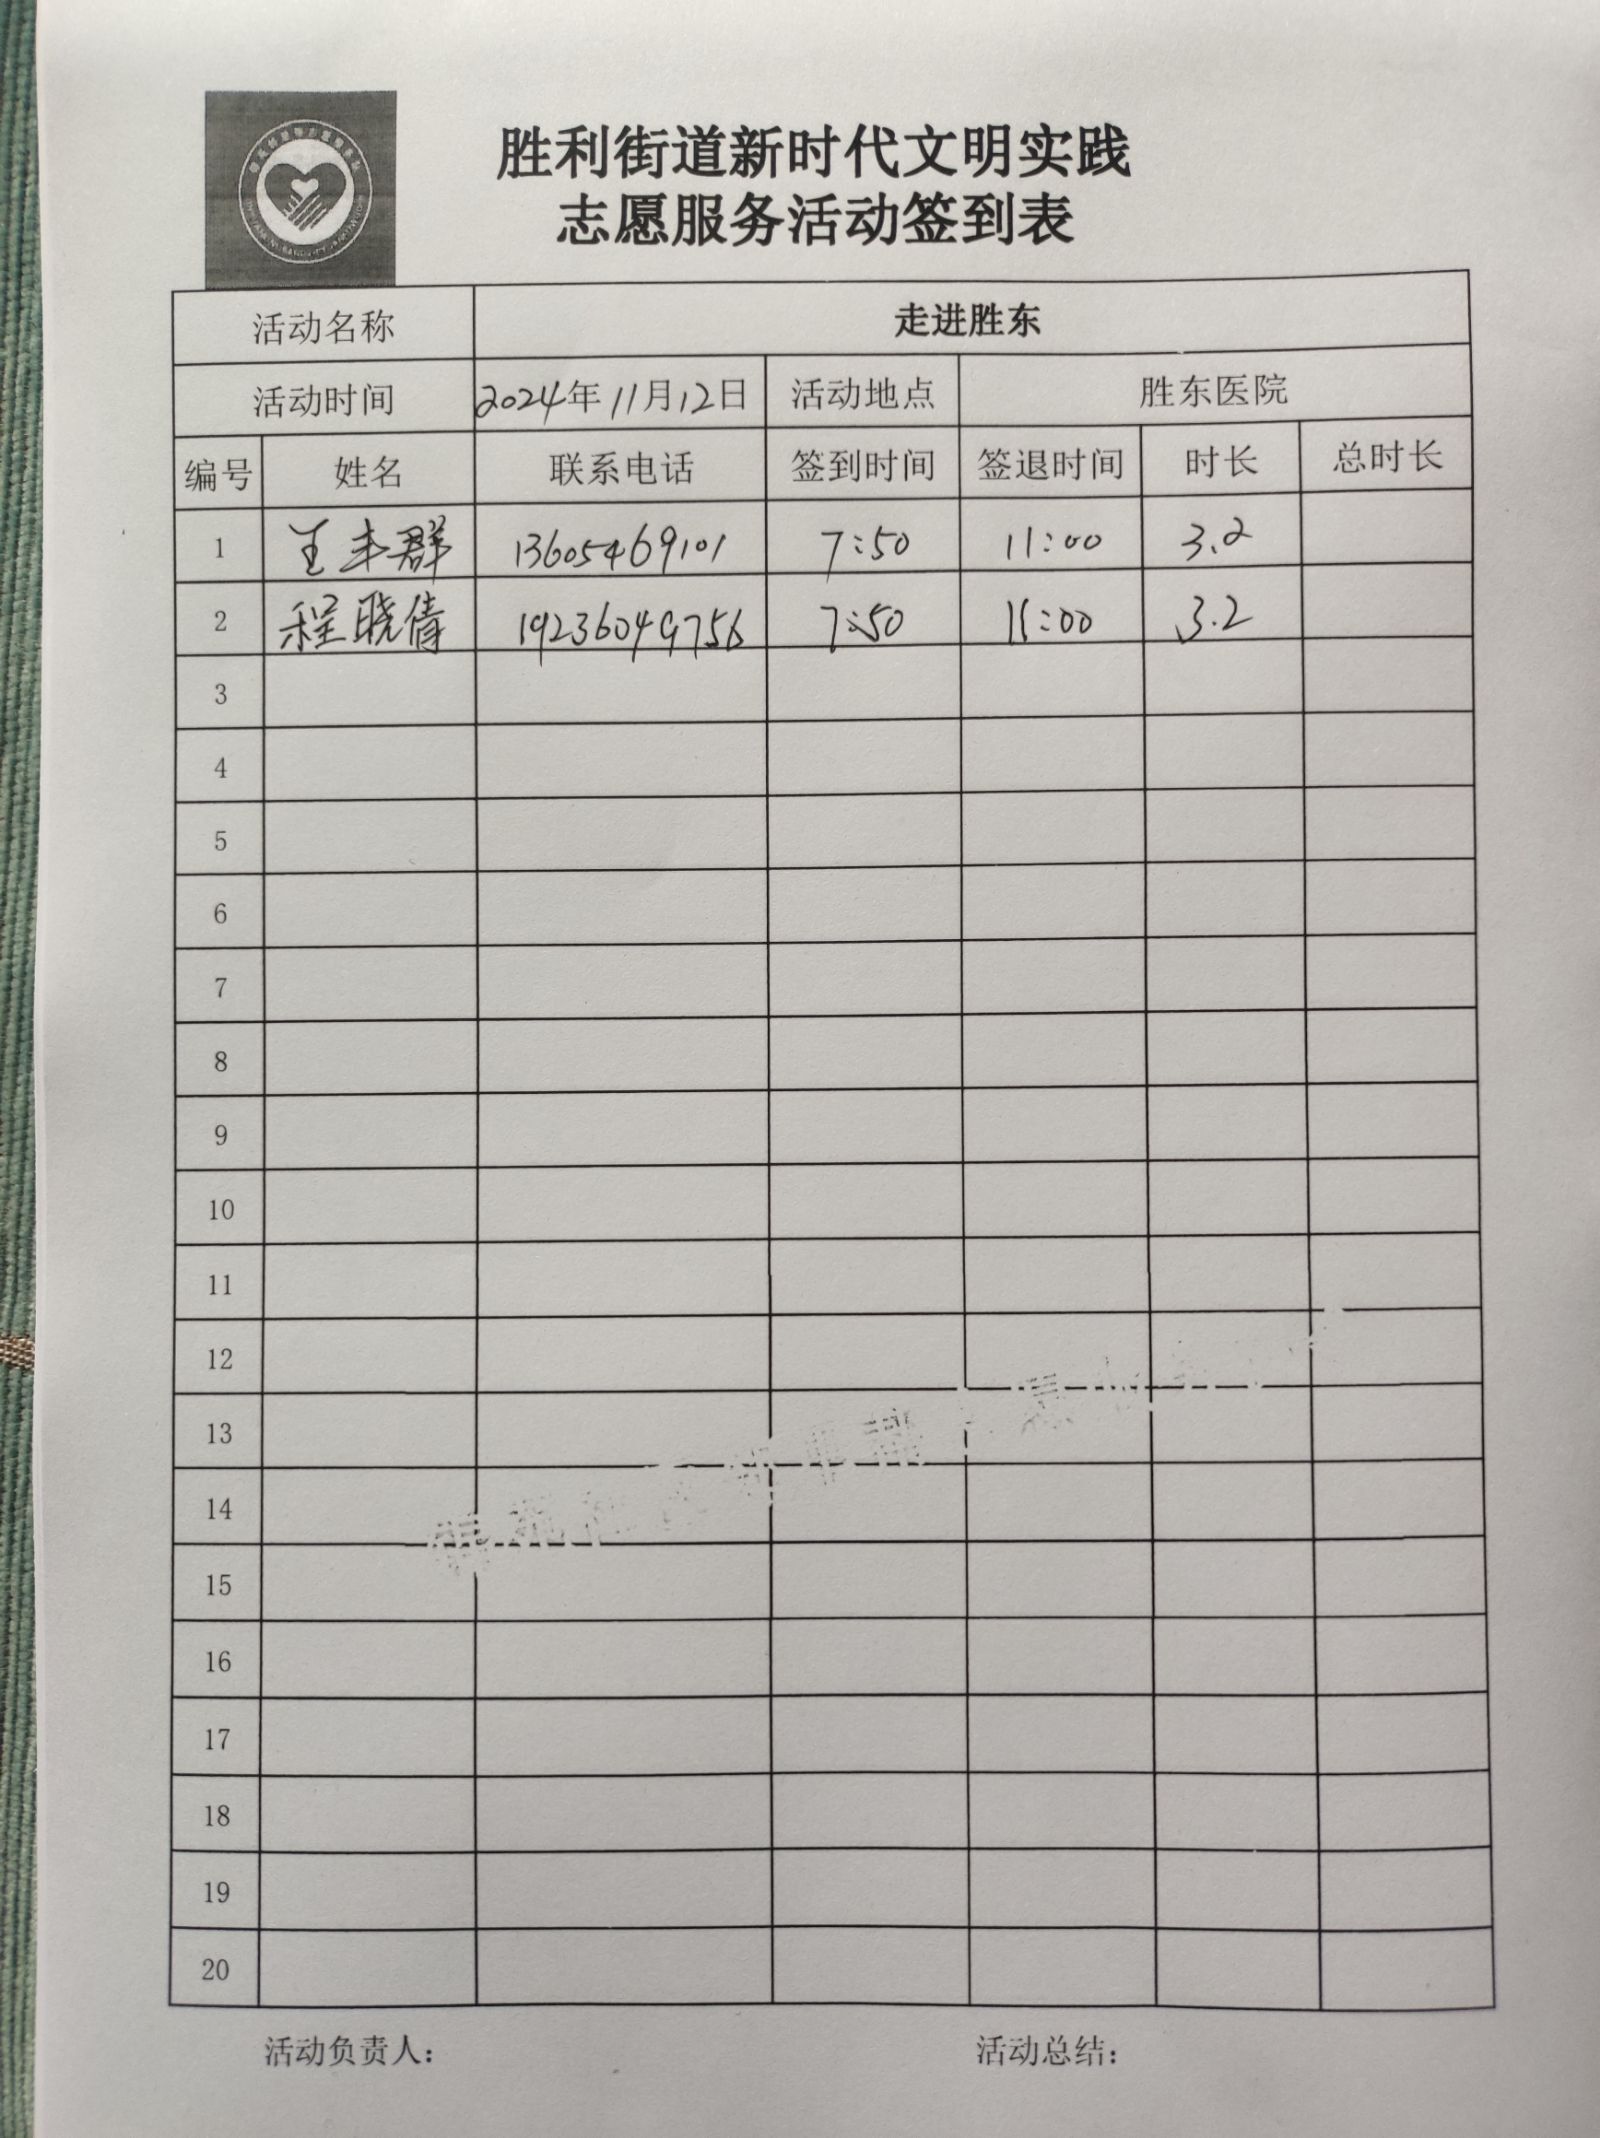 胜利街道新时代文明实践
志愿服务活动签到表
活动名称 走进胜东
活动时间 2024年11月12日 活动地点 胜东医院
编号 姓名 联系电话 签到时间 签退时间 时长 总时长
1 王丰群 13605469101 7:50 11:00 3.2
2 程晓倩 19236049756 7:50 11:00 3.2
3
4
5
6
7
8
9
10
11
12
13
14
15
16
17
18
19
20
活动负责人： 活动总结：